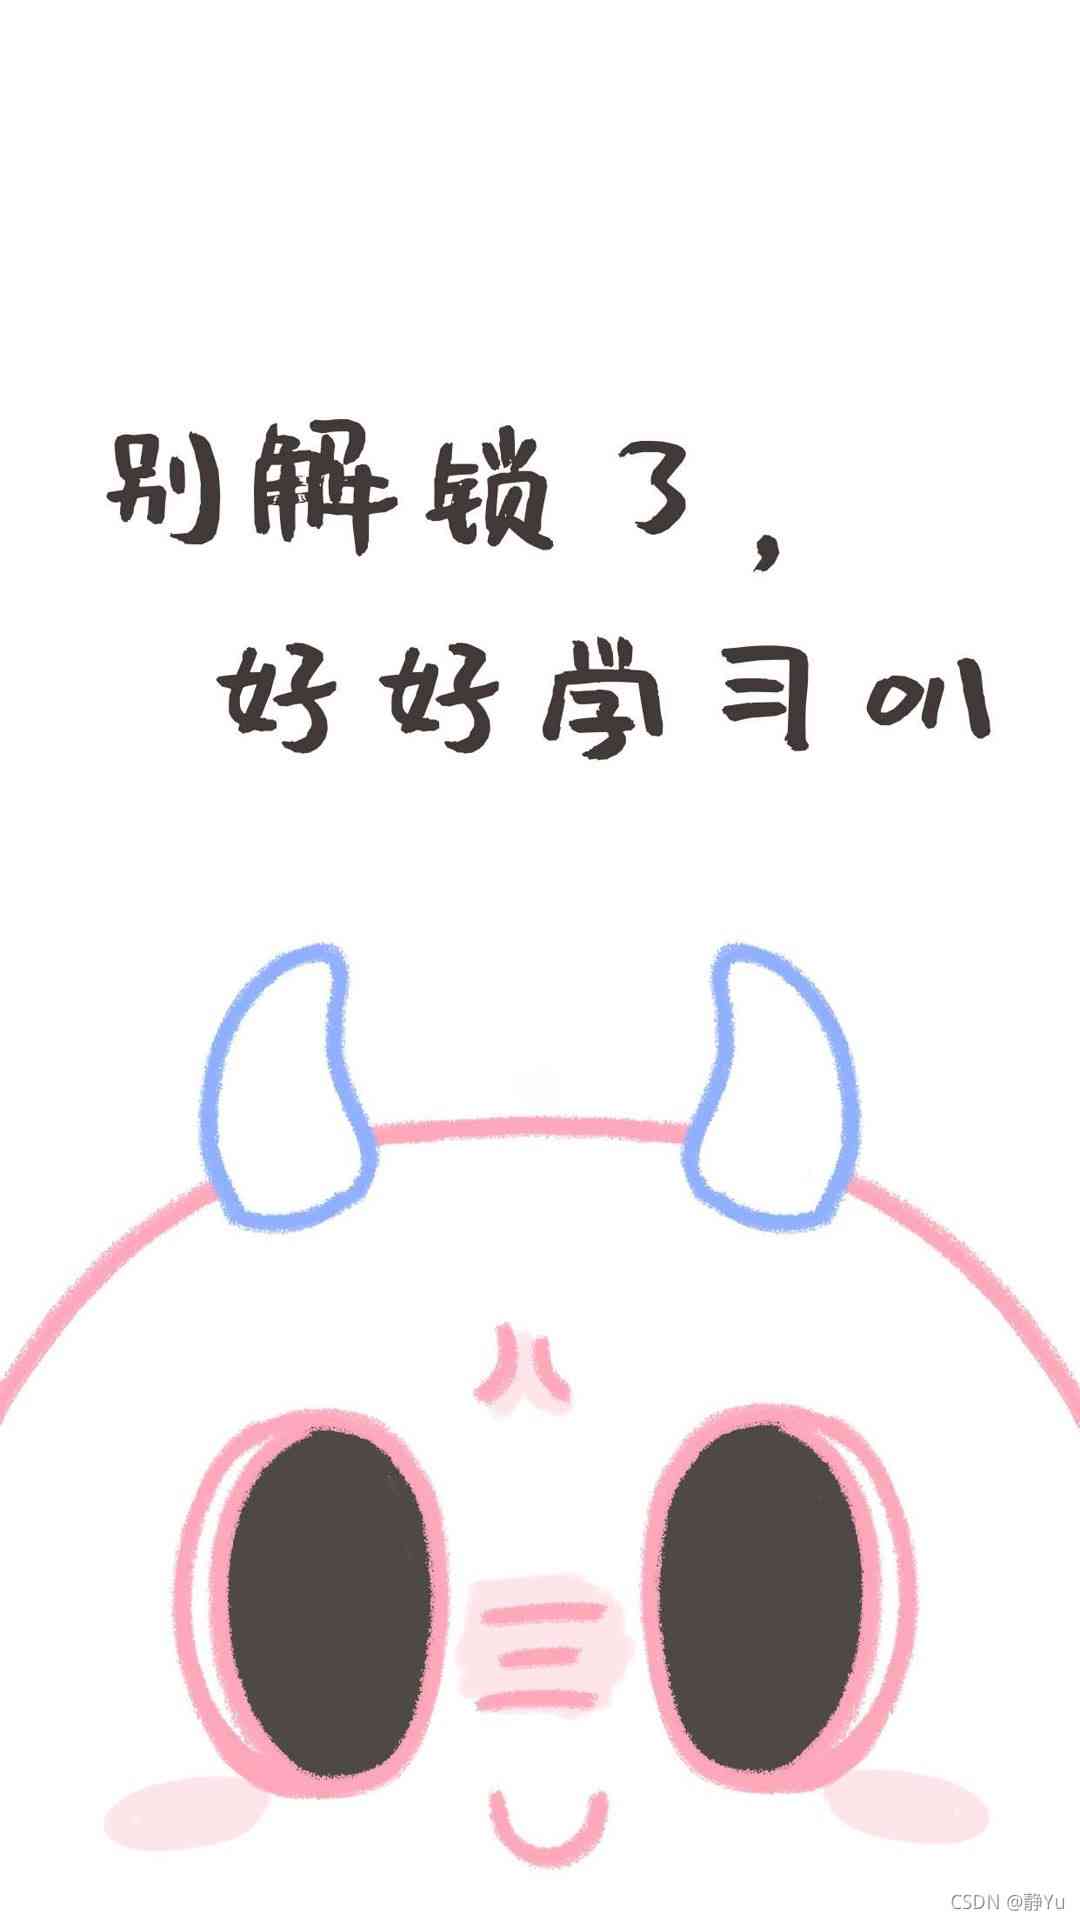 别解锁了，
好好学习叭
CSDN @静Yu